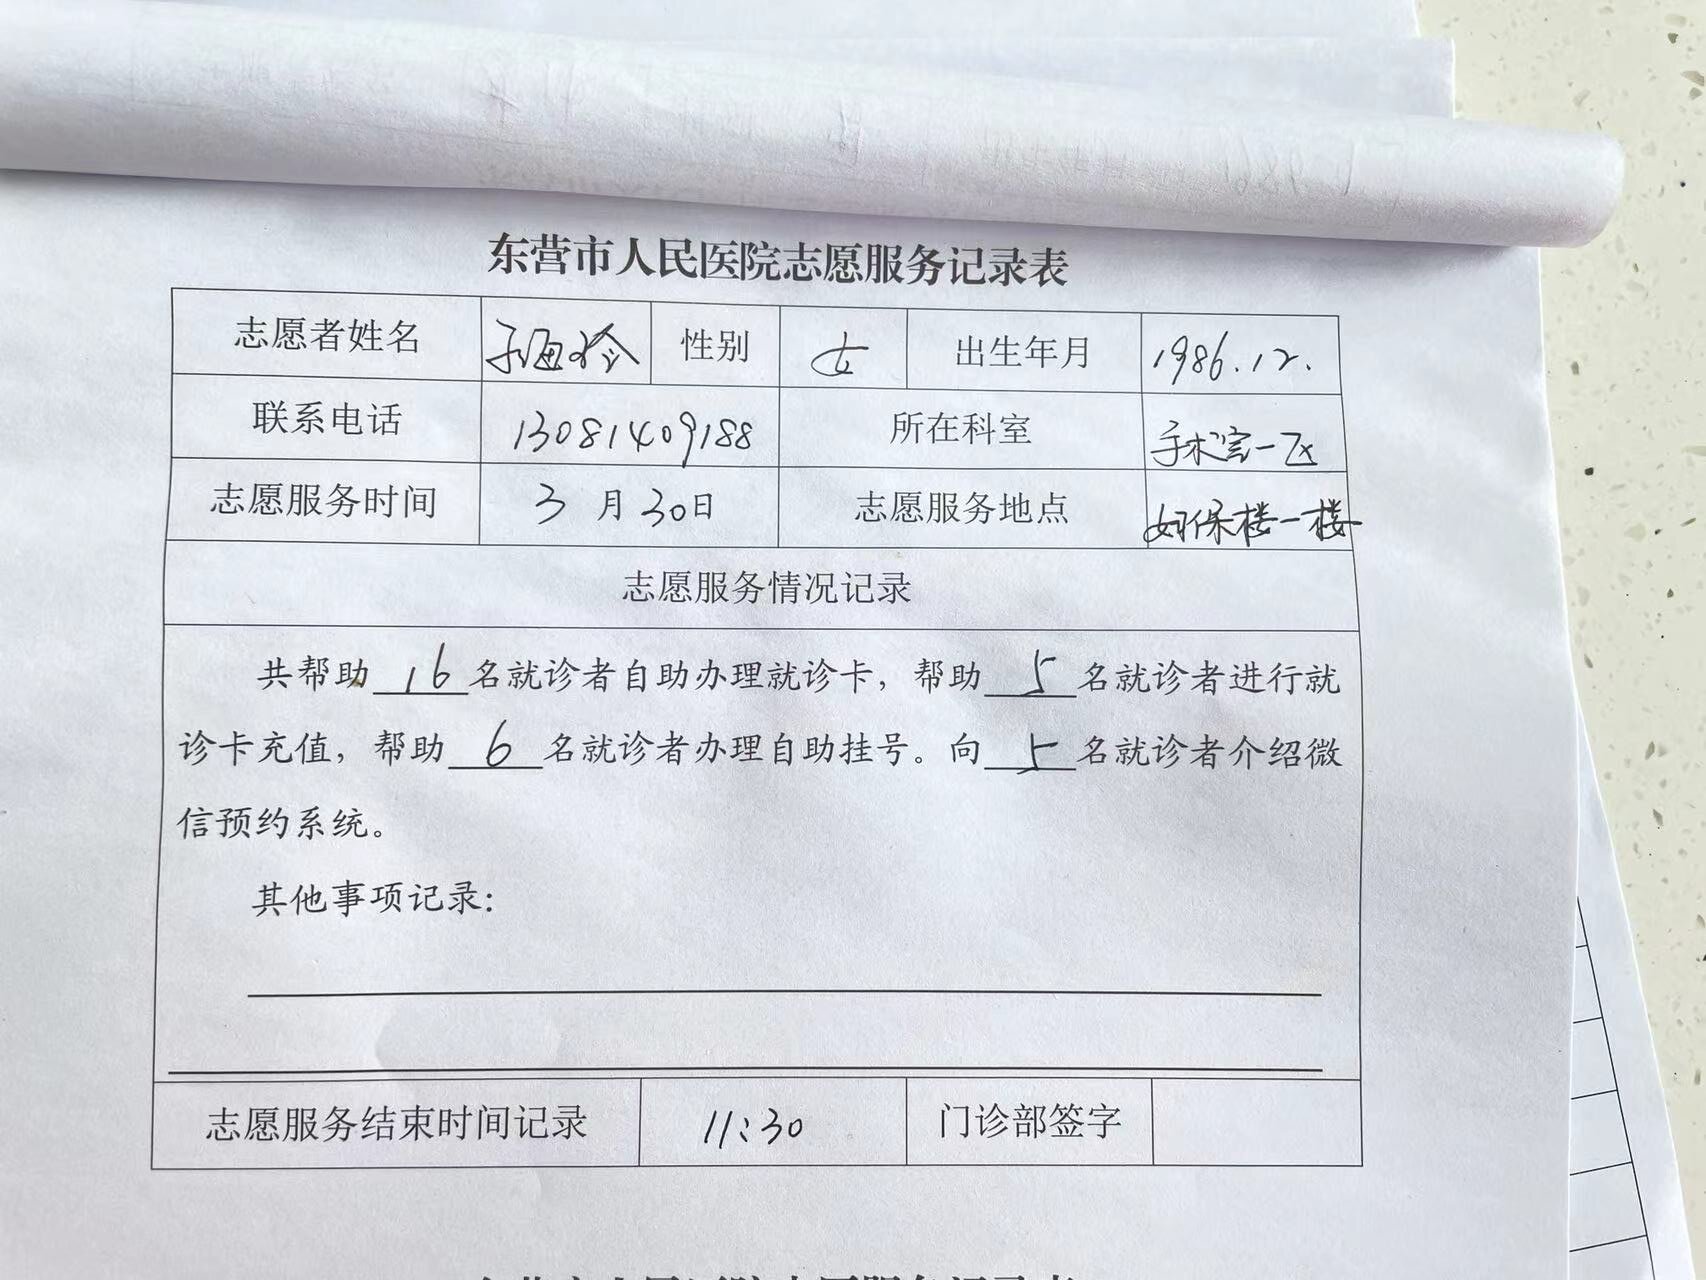 东营市人民医院志愿服务记录表
志愿者姓名 海玲 性别 女 出生年月 1986.12.
联系电话 13081409188 所在科室 手术室一区
志愿服务时间 3月30日 志愿服务地点 妇保楼一楼
志愿服务情况记录
共帮助16名就诊者自助办理就诊卡，帮助5名就诊者进行就
诊卡充值，帮助6名就诊者办理自助挂号。向5名就诊者介绍微
信预约系统。
其他事项记录：
志愿服务结束时间记录 11:30 门诊部签字